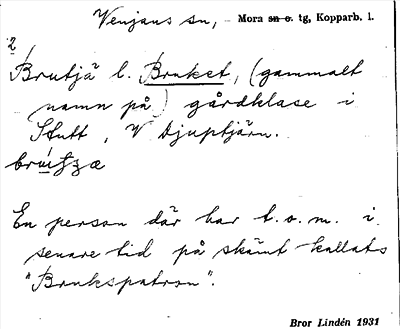 Venjans sn, - Mora sn o. tg, Kopparb. l.
2
Brutjä l. Bruket, (gammalt
namn på) gårdklase i
Stutt, V Djuptjärn.
En person där har t.o.m. i
senare tid på skämt kallats
"Brukspatron".
Bror Lindén 1931